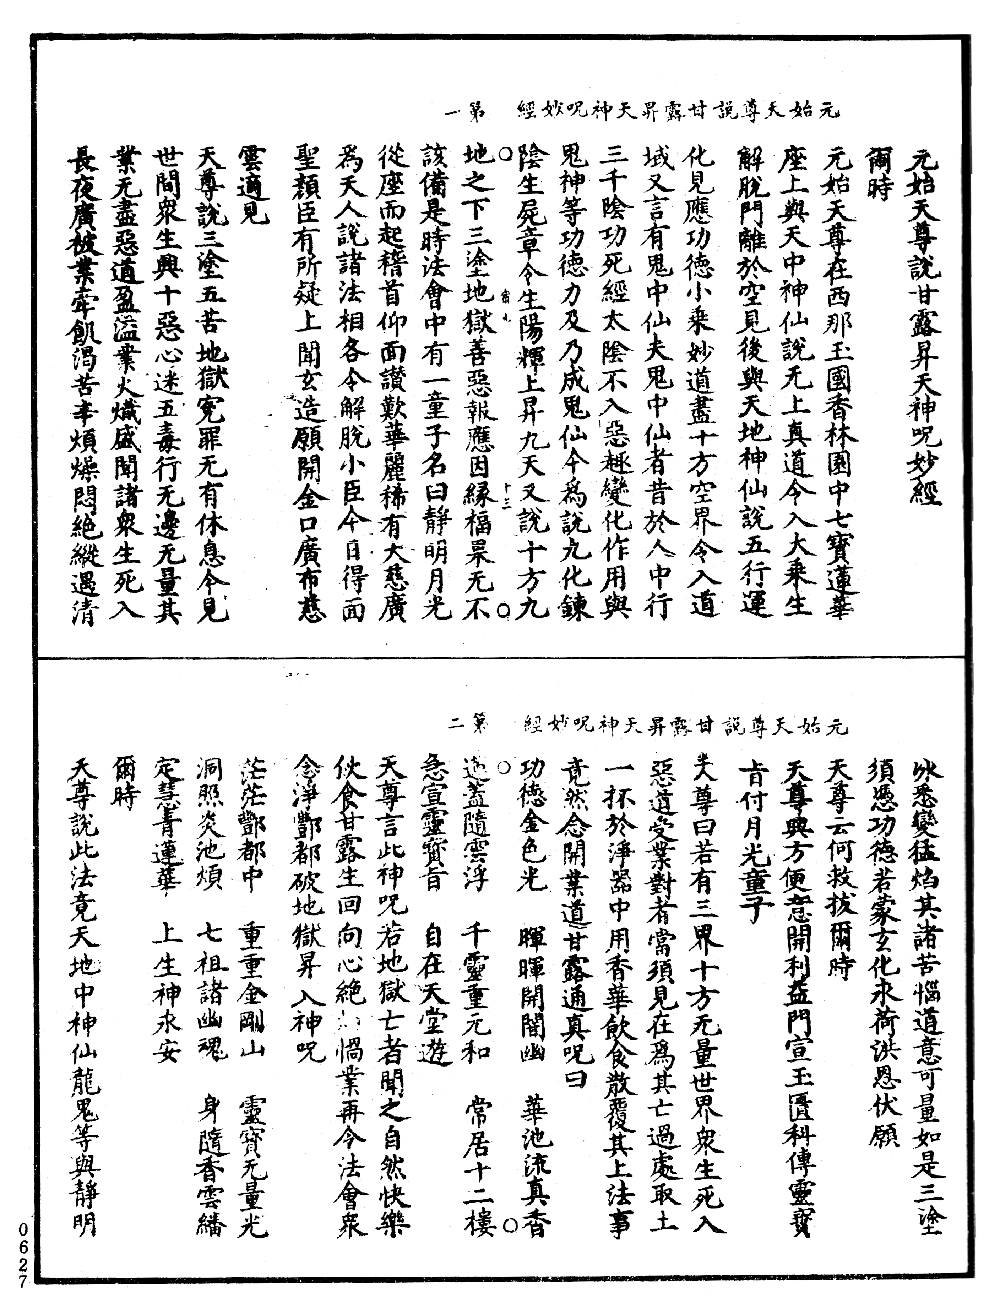 元始天尊說甘露昇天神呪妙經　第一
元始天尊說甘露昇天神呪妙經
爾時
元始天尊在西那玉國香林園中七寶蓮華
座上與天中神仙說无上真道令入大乘生
解脫門離於空見後與天地神仙說五行運
化見應功德小乘妙道盡十方空界令入道
域又言有鬼中仙夫鬼中仙者昔於人中行
三千陰功死經太陰不入惡趣變化作用與
鬼神等功德力及乃成鬼仙今為說九化鍊
陰生屍章令生陽輝上昇九天又說十方九
地之下三塗地獄善惡報應因緣福果无不
該備是時法會中有一童子名曰靜明月光
從座而起稽首仰面讚歎華麗稀有大慈廣
為天人說諸法相各令解脫小臣今日得面
聖顏臣有所疑上聞玄造願開金口廣布慈
雲適見
天尊說三塗五苦地獄寃罪无有休息今見
世間眾生興十惡心迷五毒行无邊无量其
業无盡惡道盈溢業火熾盛聞諸眾生死入
長夜廣被業牽飢渴苦辛煩燥悶絕縱遇清
元始天尊說甘露昇天神呪妙經　第二
冰悉變猛焰其諸苦惱道意可量如是三塗
須憑功德若蒙玄化永荷洪恩伏願
天尊云何救拔爾時
天尊興方便意開利益門宣玉匱科傳靈寶
旨付月光童子
天尊曰若有三界十方无量世界眾生死入
惡道受業對者當須見在為其亡過處取土
一抔於淨器中用香華飲食散覆其上法事
竟然念開業道甘露通真呪曰
功德金色光　暉暉開闇幽　華池流真香
蓮蓋隨雲浮　千靈重元和　常居十二樓
急宣靈寶旨　自在天堂遊
天尊言此神呪若地獄亡者聞之自然快樂
伏食甘露生回向心絕禍業再令法會眾
念淨酆都破地獄昇入神呪
茫茫酆都中　重重金剛山　靈寶无量光
洞照炎池煩　七祖諸幽魂　身隨香雲旛
定慧青蓮華　上生神永安
爾時
天尊說此法竟天地中神仙龍鬼等與靜明
0627